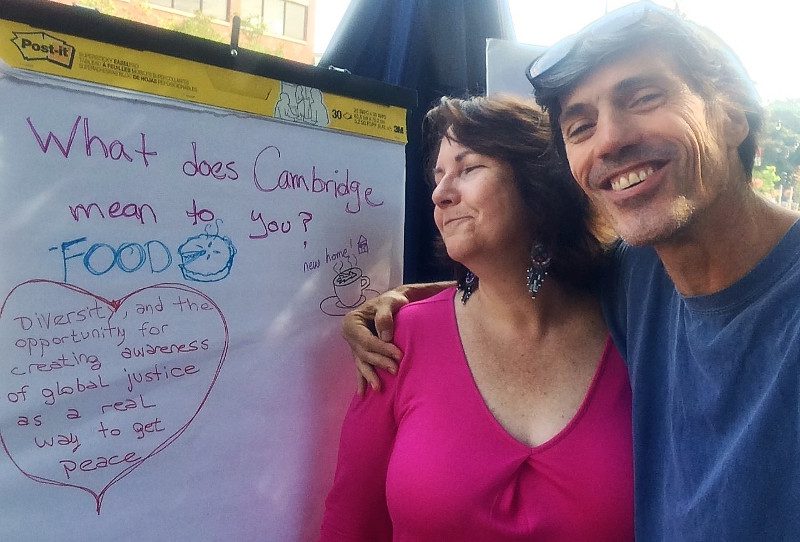 Post-it
30
3M
What does Cambridge
mean to you?
FOOD
new home!
Diversity, and the
opportunity for
creating awareness
of global justice
as a real
way to get
peace